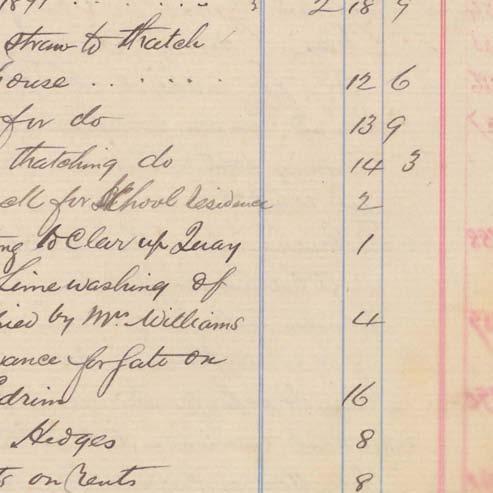 1897 . . . . . . 2 18 9
straw to thatch
ouse . . . . . . 12 6
for do 13 9
thatching do 14 3
ell for School residence 2
ng to Clear up Quay 1
Limewashing of
pied by Mrs Williams 4
wance for Gate on
drim 16
Hedges 8
ts on Rents 8